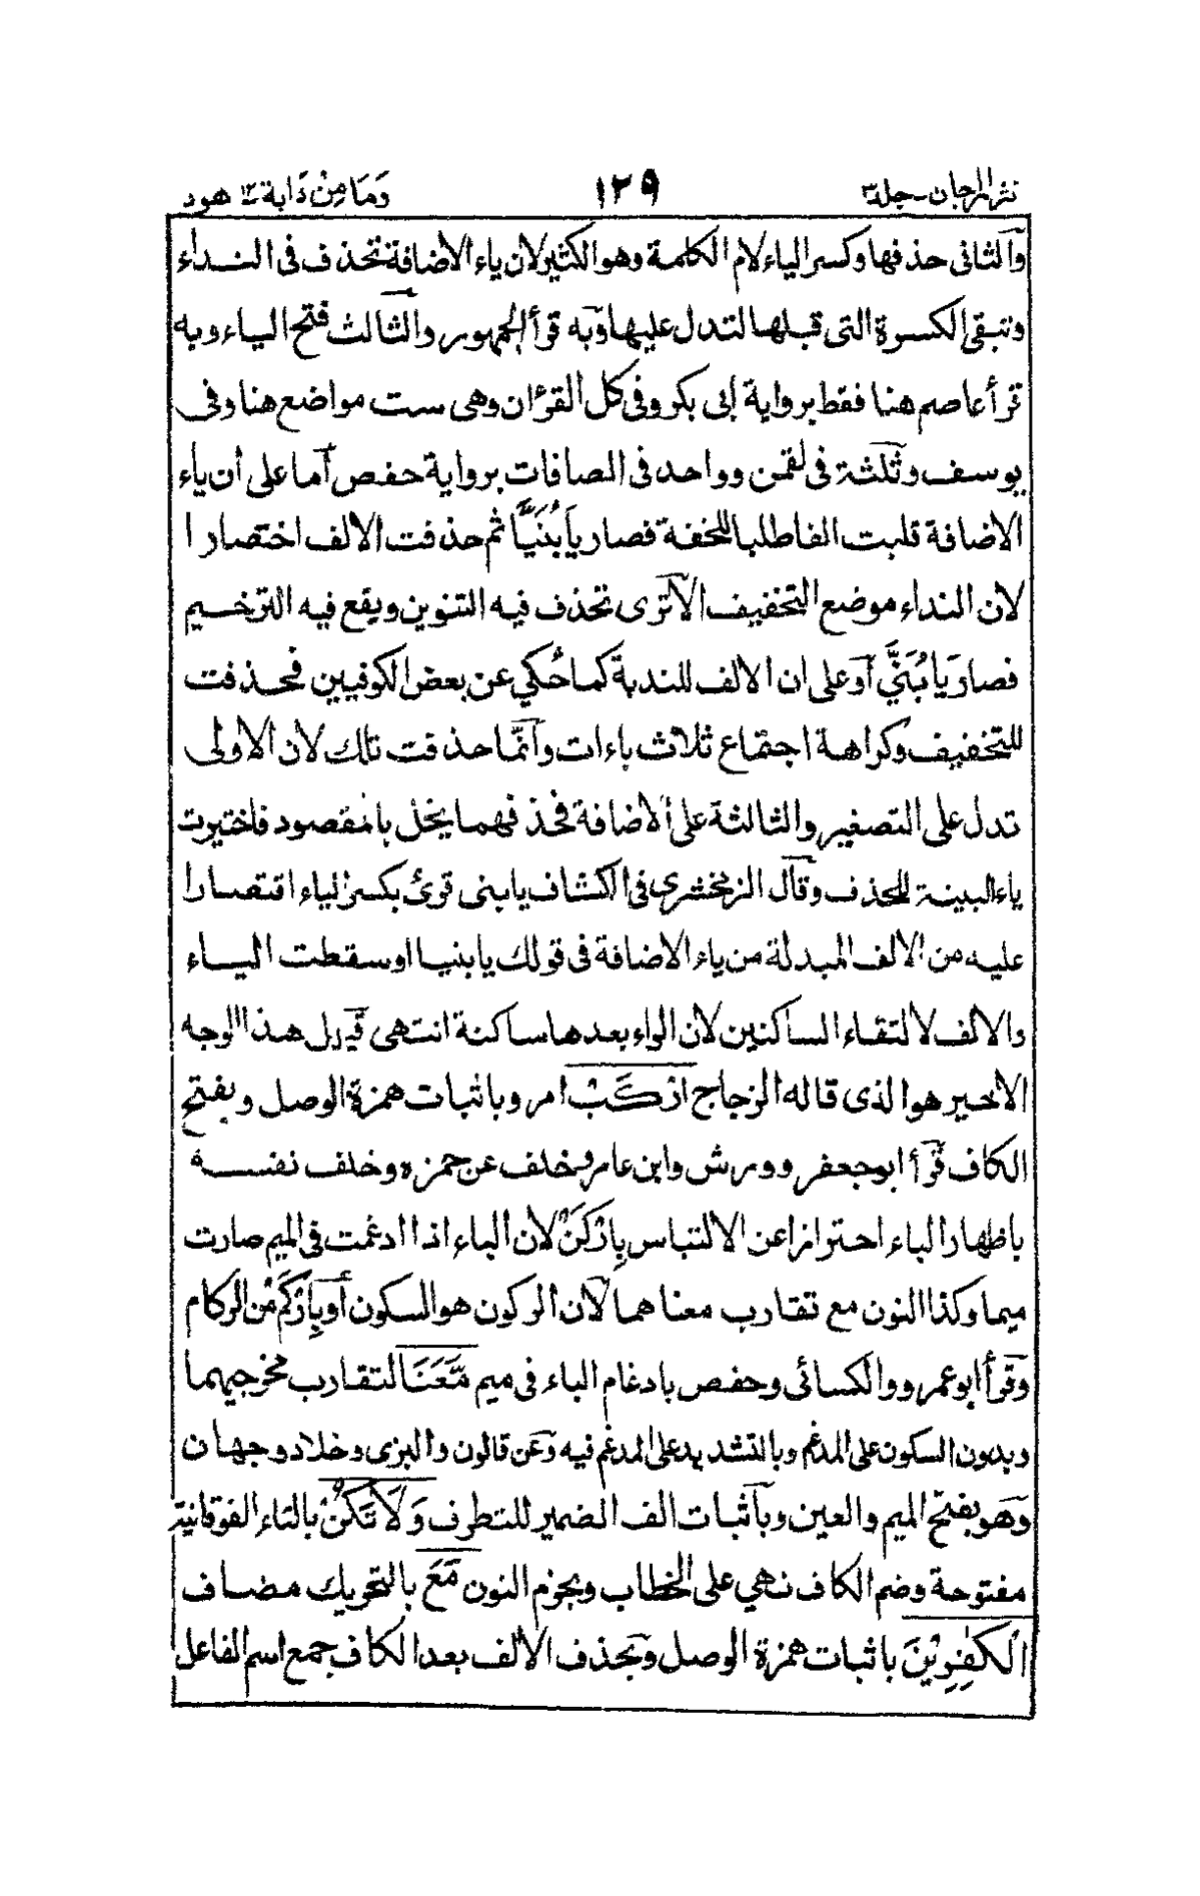 نثر المرجان - جلد٣
١٢٩
وَمَا مِنْ دَابة ١٢ هود
والثانى حذفها وكسر الياء لام الكلمة وهو الكثير لان ياء الاضافة تحذف فى النداء
وتبقى الكسرة التى قبلها لتدل عليها وبه قرأ الجمهور والثالث فتح الياء وبه
قرأ عاصم هنا فقط برواية ابى بكر وفى كل القرءان وهى ست مواضع هنا وفى
يوسف وثلثة فى لقمن وواحد فى الصافات برواية حفص اما على أن ياء
الاضافة قلبت الفا طلبا للخفة فصار يَابُنَيَّا ثم حذفت الالف اختصارا
لان النداء موضع التخفيف الا ترى تحذف فيه التنوين ويقع فيه الترخيم
فصار يَابُنَيَّ أو على ان الالف للندبة كما حُكي عن بعض الكوفيين فحذفت
للتخفيف وكراهة اجتماع ثلاث ياءات وانّما حذفت تلك لان الاولى
تدل على التصغير والثالثة على الاضافة فحذفهما يخل بالمقصود فاختيرت
ياء البينة للحذف وقال الزمخشرى فى الكشاف يابنى قرئ بكسر الياء اقتصارا
عليه من الالف المبدلة من ياء الاضافة فى قولك يا بنيا او سقطت الياء
والالف لالتقاء الساكنين لان الراء بعدها ساكنة انتهى قيل هذا الوجه
الاخير هو الذى قاله الزجاج ارْكَبْ امر وباثبات همزة الوصل وبفتح
الكاف قرأ ابو جعفر وورش وابن عامر وخلف عن حمزه وخلف نفسه
باظهار الباء احترازا عن الالتباس بِارْكَنْ لان الباء اذا ادغمت فى الميم صارت
ميما وكذا النون مع تقارب معناهما لان الركون هو السكون أو بِارْكَمْ من الركام
وقرأ ابو عمرو والكسائى وحفص بادغام الباء فى ميم مَّعَنَا لتقارب مخرجيهما
وبدون السكون على المدغم وبالتشديد على المدغم فيه وعن قالون والبزى وخلاد وجهان
وَهو بفتح الميم والعين وباثبات الف الضمير للتطرف وَلَا تَكُنْ بالتاء الفوقانية
مفتوحة وضم الكاف نهي على الخطاب وبجزم النون مَّعَ بالتحريك مضاف
الْكٰفِرِيْنَ باثبات همزة الوصل وبحذف الالف بعد الكاف جمع اسم الفاعل